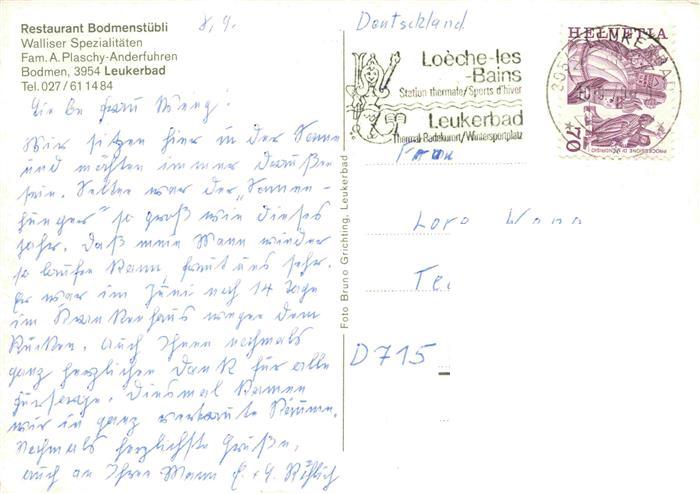 Restaurant Bodmenstübli
Walliser Spezialitäten
Fam. A. Plaschy-Anderfuhren
Bodmen, 3954 Leukerbad
Tel. 027/61 14 84
8.9.
Liebe Frau
Wir sitzen hier in der Sonne
und möchten immer draußen
sein. Selten war der „Sonnen-
hunger" so groß wie dieses
Jahr. Daß mein Mann wieder
so laufen kann, freut uns sehr.
Er war im Juni noch 14 Tage
im Krankenhaus wegen dem
Rücken. Auch Ihnen nochmals
ganz herzlichen Dank für alle
Fürsorge. Diesmal kamen
wir in ganz vertraute Räume.
Nochmals herzlichste Grüße,
auch an Ihren Mann
Foto Bruno Grichting, Leukerbad
Deutschland
Loèche-les
-Bains
Station thermale/Sports d'hiver
Leukerbad
Thermal-Badekurort/Wintersportplatz
HELVETIA
70
Frau
D 715